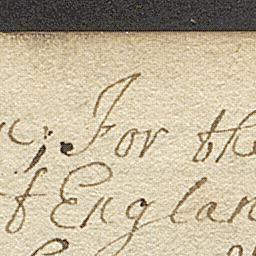 ; For the
of Englan